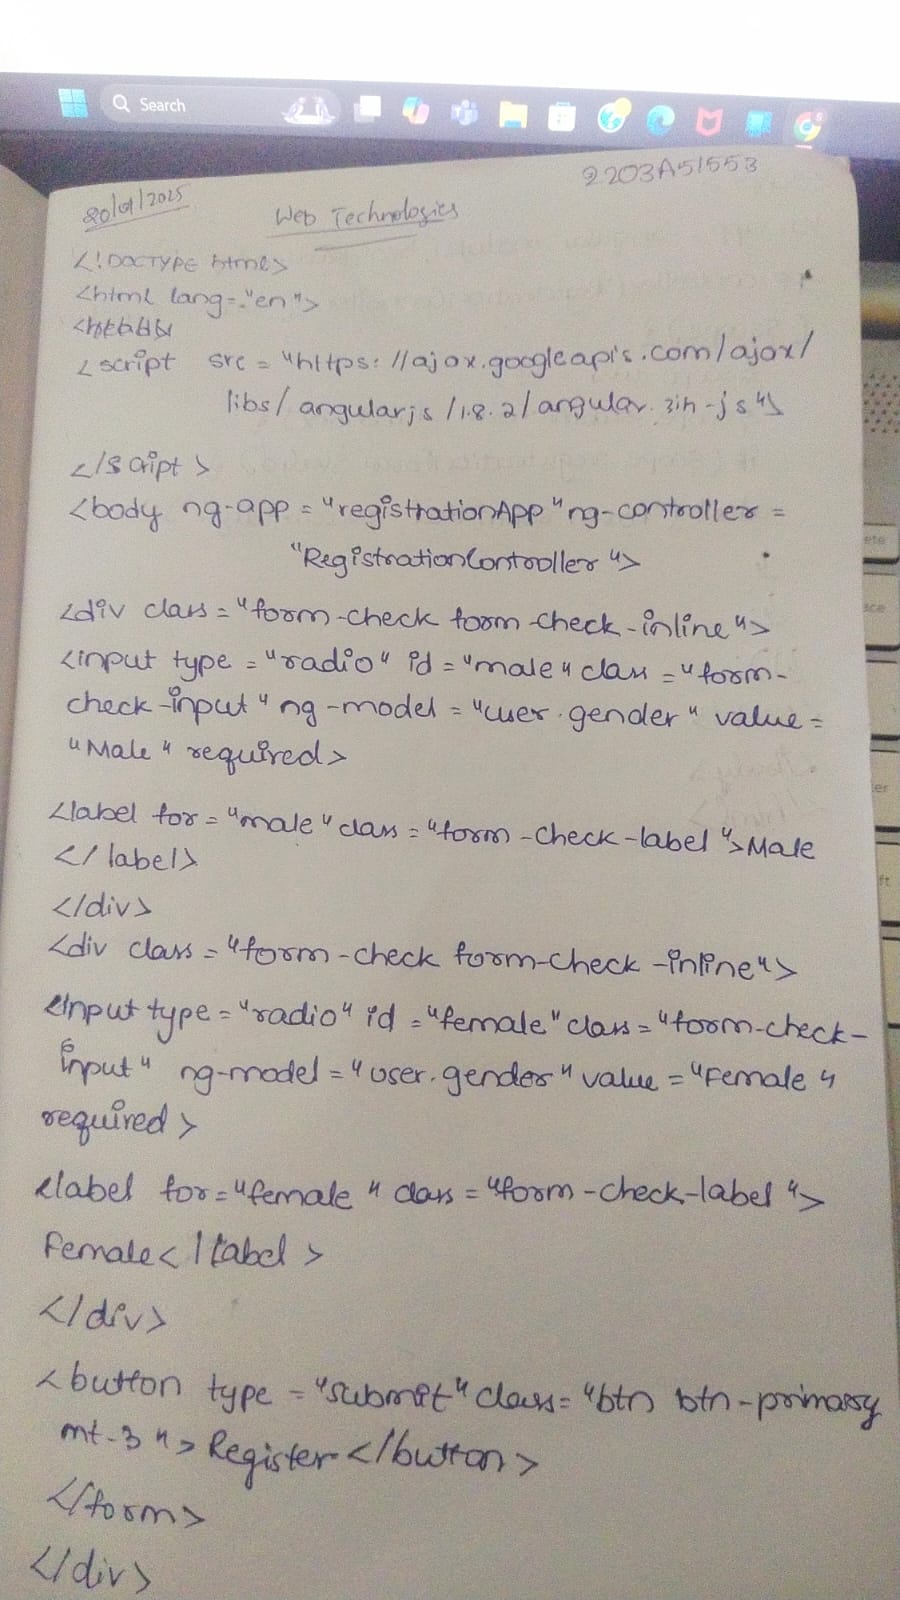 Search
2203A51553
20/01/2025
Web Technologies
<!DOCTYPE html>
<html lang="en">
<script src = "https://ajax.googleapis.com/ajax/
libs/angularjs/1.8.2/angular.min-js">
</script>
<body ng-app = "registrationApp" ng-controller =
"RegistrationController">
<div class = "form-check form-check-inline">
<input type = "radio" id = "male" class = "form-
check-input" ng-model = "user.gender" value =
"Male" required>
<label for = "male" class = "form-check-label">Male
</label>
</div>
<div class = "form-check form-check-inline">
<input type = "radio" id = "female" class = "form-check-
input" ng-model = "user.gender" value = "Female"
required>
<label for = "female" class = "form-check-label">
Female</label>
</div>
<button type = "submit" class = "btn btn-primary
mt-3">Register</button>
</form>
</div>